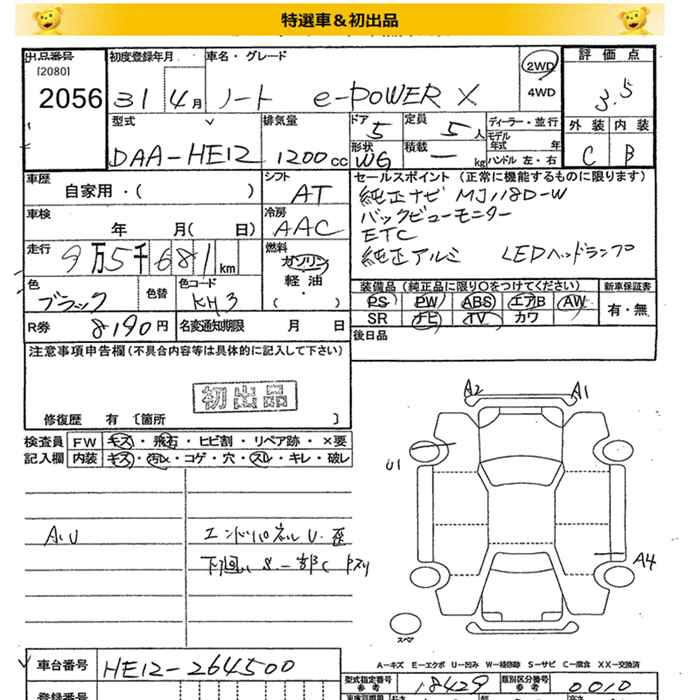 特選車＆初出品
出品番号 初度登録年月 車名・グレード 評価点
[2080]
2056 31 4月 ノート e-POWER X 2WD 4WD 3.5
型式 排気量 ドア 5 定員 5人 ディーラー・並行 外装 内装
モデル年式 年
DAA-HE12 1200cc 形状 WG 積載 ー kg ハンドル 左・右 C B
車歴 シフト セールスポイント (正常に機能するものに限ります)
自家用・( ) AT 純正ナビ MJ118D-W
車検 冷房 バックビューモニター
年 月( 日) AAC ETC
走行 9万5千681km 燃料 純正アルミ LEDヘッドランプ
ガソリン
軽油
・( )
色 色替 色コード 装備品 (純正品に限り○をつけてください) 新車保証書
ブラック KH3 PS PW ABS エアB AW 有・無
SR ナビ TV カワ
R券 8190円 名変通知期限 月 日 後日品
注意事項申告欄 (不具合内容等は具体的に記入して下さい)
初出品
修復歴 有 [箇所 ]
検査員 FW キズ・飛石・ヒビ割・リペア跡・×要
記入欄 内装 キズ・汚レ・コゲ・穴・スレ・キレ・破レ
A2 A1
U1
A.U エンドパネルU.歪
下廻りS.一部C
A4
スペア
A-キズ E-エクボ U-凹み W-補修跡 S-サビ C-腐食 XX-交換済
車台番号 HE12-264500
型式指定番号 参考 18429 類別区分番号 参考 0010
登録番号